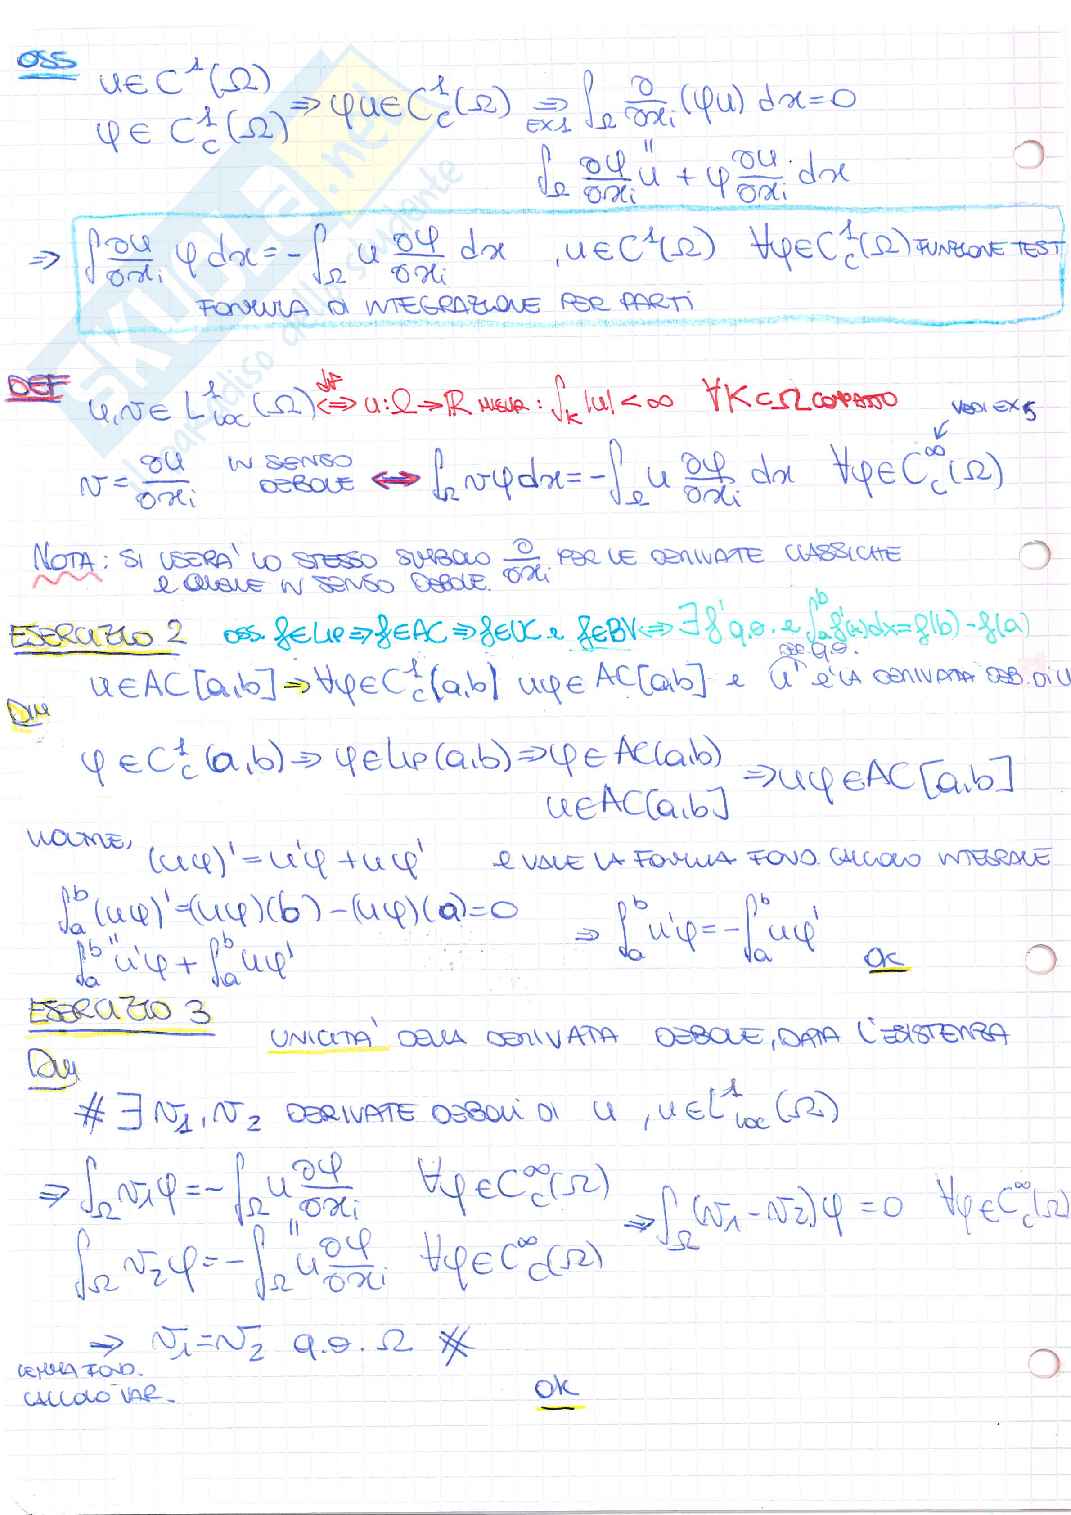 OSS
u∈C¹(Ω)
φ∈C¹_c(Ω) ⇒ φu∈C¹_c(Ω) ⇒ EX1 ∫_Ω ∂/∂xᵢ (φu) dx = 0
"
∫_Ω ∂φ/∂xᵢ u + φ ∂u/∂xᵢ dx
⇒ ∫ ∂u/∂xᵢ φ dx = - ∫_Ω u ∂φ/∂xᵢ dx , u∈C¹(Ω) ∀φ∈C¹_c(Ω) FUNZIONE TEST
FORMULA DI INTEGRAZIONE PER PARTI
DEF u,v∈L¹_loc(Ω) ⇔ def u:Ω→ℝ MISUR: ∫_K |u| < ∞ ∀K⊂Ω COMPATTO
VEDI EX 5
v = ∂u/∂xᵢ IN SENSO DEBOLE ⇔ ∫_Ω vφ dx = - ∫_Ω u ∂φ/∂xᵢ dx ∀φ∈C^∞_c(Ω)
NOTA: SI USERA' LO STESSO SIMBOLO ∂/∂xᵢ PER LE DERIVATE CLASSICHE
E QUELLE IN SENSO DEBOLE.
ESERCIZIO 2 OSS. f∈LIP ⇒ f∈AC ⇒ f∈UC e f∈BV ⇔ ∃f' q.o. e ∫_a^b f'(x)dx = f(b) - f(a)
q.o.
u∈AC[a,b] ⇒ ∀φ∈C¹_c[a,b] uφ∈AC[a,b] e u' è LA DERIVATA DEB. DI u
Dim
φ∈C¹_c(a,b) ⇒ φ∈LIP(a,b) ⇒ φ∈AC(a,b)
u∈AC[a,b] ⇒ uφ∈AC[a,b]
INOLTRE, (uφ)' = u'φ + uφ' E VALE LA FORMULA FOND. CALCOLO INTEGRALE
∫_a^b (uφ)' = (uφ)(b) - (uφ)(a) = 0
"
∫_a^b u'φ + ∫_a^b uφ' ⇒ ∫_a^b u'φ = - ∫_a^b uφ' OK
ESERCIZIO 3
UNICITA' DELLA DERIVATA DEBOLE, DATA L'ESISTENZA
Dim
# ∃ v₁, v₂ DERIVATE DEBOLI DI u , u∈L¹_loc(Ω)
⇒ ∫_Ω v₁φ = - ∫_Ω u ∂φ/∂xᵢ ∀φ∈C^∞_c(Ω)
"
∫_Ω v₂φ = - ∫_Ω u ∂φ/∂xᵢ ∀φ∈C^∞_c(Ω) ⇒ ∫_Ω (v₁ - v₂)φ = 0 ∀φ∈C^∞_c(Ω)
⇒ v₁ = v₂ q.o. Ω #
LEMMA FOND.
CALCOLO VAR.
OK
SKUOLA.net
il paradiso dello studente